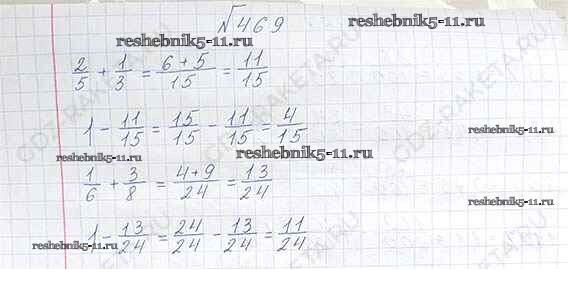 √469
reshebnik5-11.ru
reshebnik5-11.ru
2/5 + 1/3 = (6+5)/15 = 11/15
1 - 11/15 = 15/15 - 11/15 = 4/15
reshebnik5-11.ru
reshebnik5-11.ru
reshebnik5-11.ru
1/6 + 3/8 = (4+9)/24 = 13/24
reshebnik5-11.ru
1 - 13/24 = 24/24 - 13/24 = 11/24
reshebnik5-11.ru
GDZ-RAKETA.RU
GDZ-RAKETA.RU